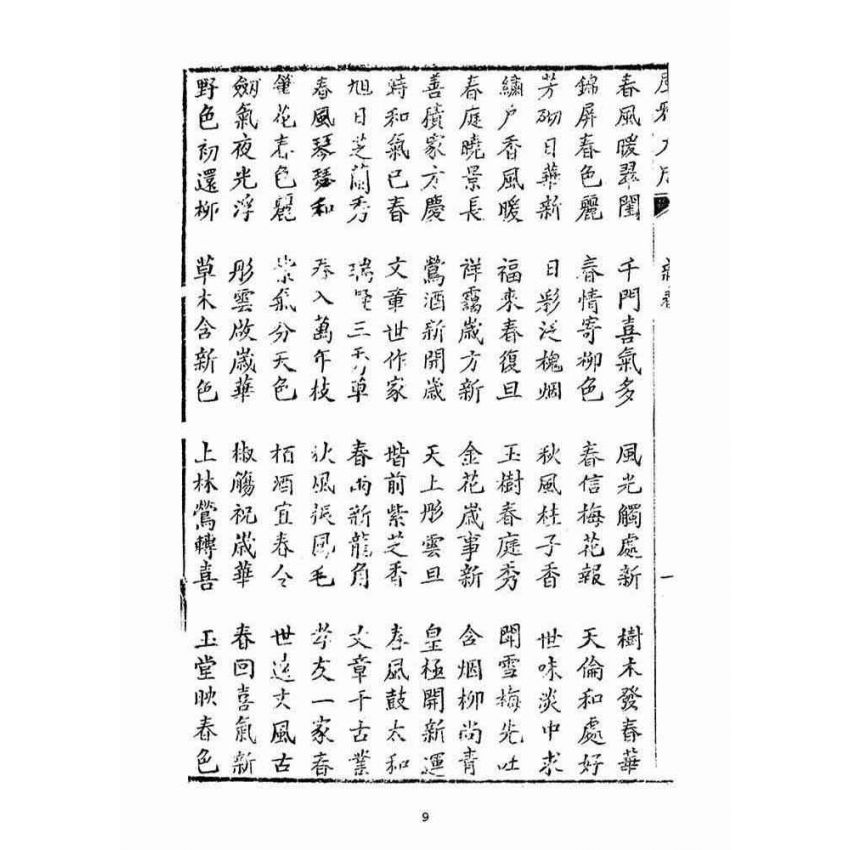 春風暖翠閨 千門喜氣多 風光觸處新 樹木發春華
錦屏春色麗 春情寄柳色 春信梅花報 天倫和處好
芳砌日華新 日影泛槐烟 秋風桂子香 世味淡中求
繡户香風暖 福來春復旦 玉樹春庭秀 聞雪梅先吐
春庭曉景長 祥靄歲方新 金花歲事新 含烟柳尚青
善積家方慶 鶯酒新開歲 天上彤雲旦 皇極開新運
時和氣已春 文章世作家 堦前紫芝香 風鼓太和
旭日芝蘭秀 瑞三秀草 春雨新龍角 文章千古業
春風琴瑟和 春入萬年枝 風鳳毛 孝友一家春
筆花春色麗 紫氣分天色 栢酒宜春令 世遠風古
劒氣夜光浮 彤雲啟歲華 椒觴祝歲華 春回喜氣新
野色初還柳 草木含新色 上林鶯轉喜 玉堂映春色
9